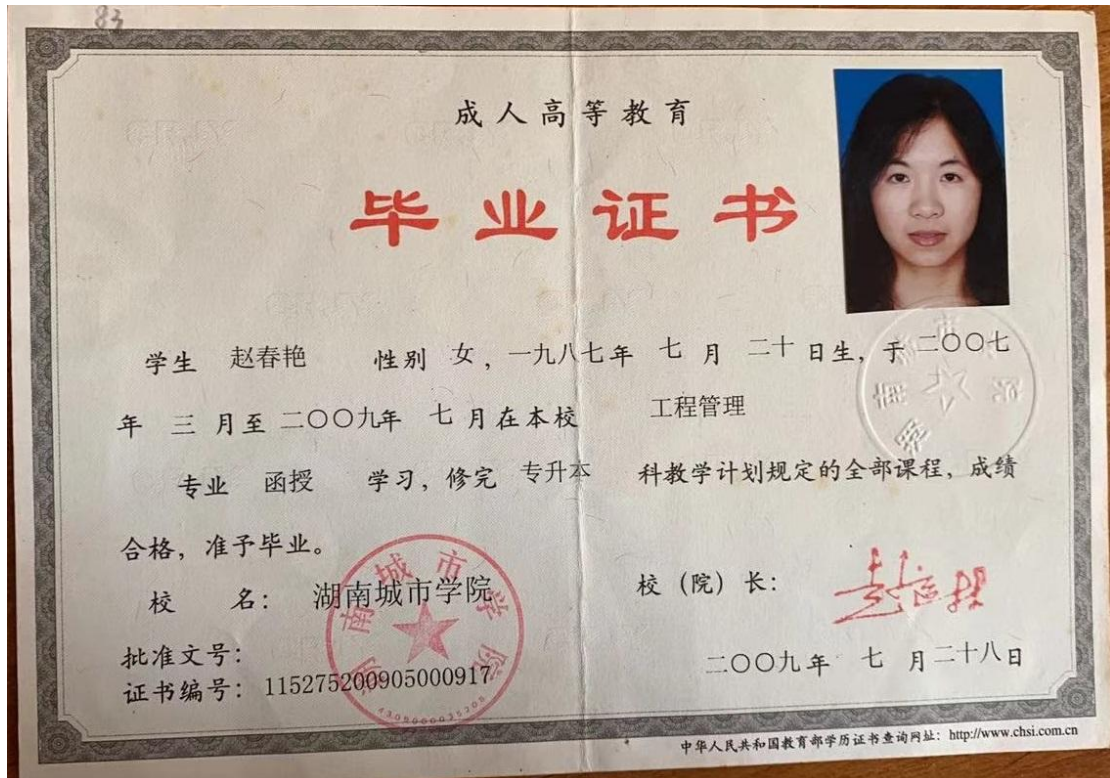 83
成人高等教育
毕业证书
学生 赵春艳 性别 女，一九八七年 七 月 二十 日生，于 二〇〇七
年 三 月至 二〇〇九年 七 月在本校 工程管理
专业 函授 学习，修完 专升本 科教学计划规定的全部课程，成绩
合格，准予毕业。
校 名： 湖南城市学院
校（院）长：
批准文号：
二〇〇九年 七 月二十八日
证书编号： 115275200905000917
湖南城市学院
中华人民共和国教育部学历证书查询网址： http://www.chsi.com.cn